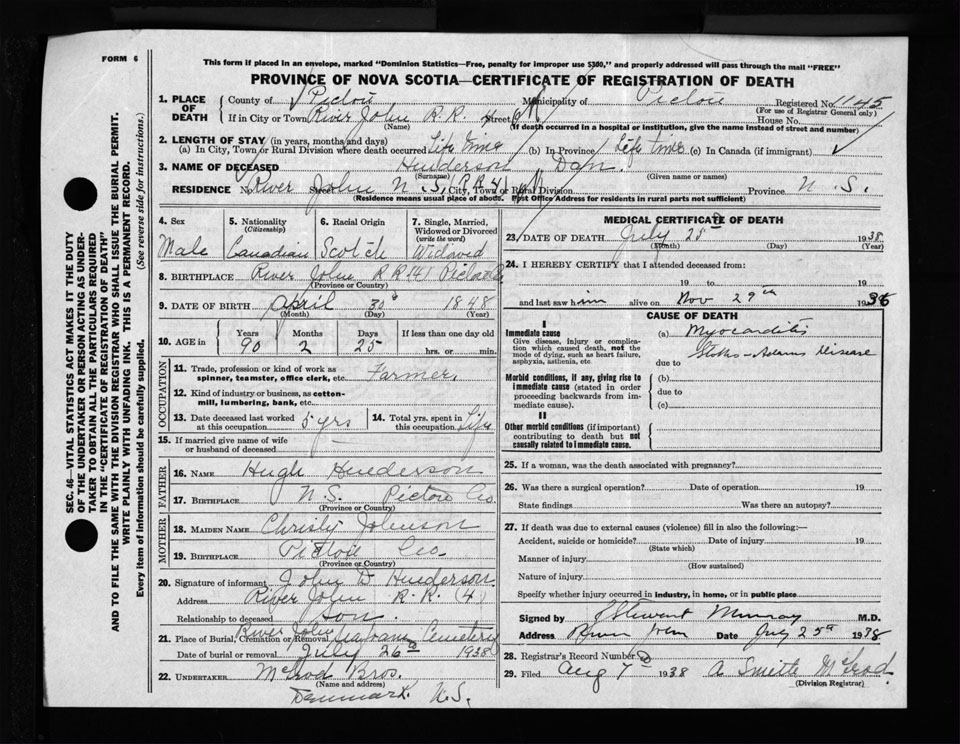 FORM 6
This form if placed in an envelope, marked "Dominion Statistics—Free, penalty for improper use $300," and properly addressed will pass through the mail "FREE"
PROVINCE OF NOVA SCOTIA—CERTIFICATE OF REGISTRATION OF DEATH
1. PLACE OF DEATH
County of Pictou Municipality of Pictou Registered No. 1145
(For use of Registrar General only)
If in City or Town River John R.R. 4 Street House No.
(Name) (If death occurred in a hospital or institution, give the name instead of street and number)
2. LENGTH OF STAY (in years, months and days)
(a) In City, Town or Rural Division where death occurred Life Time (b) In Province Life time (c) In Canada (if immigrant)
3. NAME OF DECEASED Henderson Dan.
(Surname) (Given name or names)
RESIDENCE No. River Street John N.S. (R.R 4) City, Town or Rural Division Province N.S.
(Residence means usual place of abode. Post Office Address for residents in rural parts not sufficient)
4. Sex 5. Nationality (Citizenship) 6. Racial Origin 7. Single, Married, Widowed or Divorced (write the word)
Male Canadian Scotch Widowed
8. BIRTHPLACE River John R R (4) Pictou Co
(Province or Country)
9. DATE OF BIRTH April 30 1848
(Month) (Day) (Year)
10. AGE in Years Months Days If less than one day old
90 2 25 hrs. or min.
OCCUPATION
11. Trade, profession or kind of work as spinner, teamster, office clerk, etc. Farmer.
12. Kind of industry or business, as cotton-mill, lumbering, bank, etc.
13. Date deceased last worked at this occupation 5 yrs 14. Total yrs. spent in this occupation Life
15. If married give name of wife or husband of deceased
FATHER
16. NAME Hugh Henderson
17. BIRTHPLACE N.S. Pictou Co.
(Province or Country)
MOTHER
18. MAIDEN NAME Christy Johnson
19. BIRTHPLACE Pictou Co.
(Province or Country)
20. Signature of informant John D Henderson.
Address River John R.R. (4)
Relationship to deceased Son.
21. Place of Burial, Cremation or Removal River John Cemetery
Date of burial or removal July 26 1938
22. UNDERTAKER McLeod Bros.
(Name and address)
Denmark. N.S.
MEDICAL CERTIFICATE OF DEATH
23. DATE OF DEATH July 25 1938
(Month) (Day) (Year)
24. I HEREBY CERTIFY that I attended deceased from:
19 to 19
and last saw him alive on Nov 29th 1936
CAUSE OF DEATH
I
Immediate cause
Give disease, injury or complication which caused death, not the mode of dying, such as heart failure, asphyxia, asthenia, etc.
(a) Myocarditis
Stokes-Adams Disease
due to
Morbid conditions, if any, giving rise to immediate cause (stated in order proceeding backwards from immediate cause).
(b)
due to
(c)
II
Other morbid conditions (if important) contributing to death but not causally related to immediate cause.
25. If a woman, was the death associated with pregnancy?
26. Was there a surgical operation? Date of operation 19
State findings Was there an autopsy?
27. If death was due to external causes (violence) fill in also the following:—
Accident, suicide or homicide? Date of injury 19
(State which)
Manner of injury
(How sustained)
Nature of injury
Specify whether injury occurred in industry, in home, or in public place
Signed by Stewart Murray M.D.
Address River John Date July 25th 1938
28. Registrar's Record Number
29. Filed Aug 7 1938 A McLeod
(Division Registrar)
SEC. 46—VITAL STATISTICS ACT MAKES IT THE DUTY
OF THE UNDERTAKER OR PERSON ACTING AS UNDERTAKER TO OBTAIN ALL THE PARTICULARS REQUIRED
IN THE "CERTIFICATE OF REGISTRATION OF DEATH"
AND TO FILE THE SAME WITH THE DIVISION REGISTRAR WHO SHALL ISSUE THE BURIAL PERMIT.
WRITE PLAINLY WITH UNFADING INK. THIS IS A PERMANENT RECORD.
Every item of information should be carefully supplied. (See reverse side for instructions.)